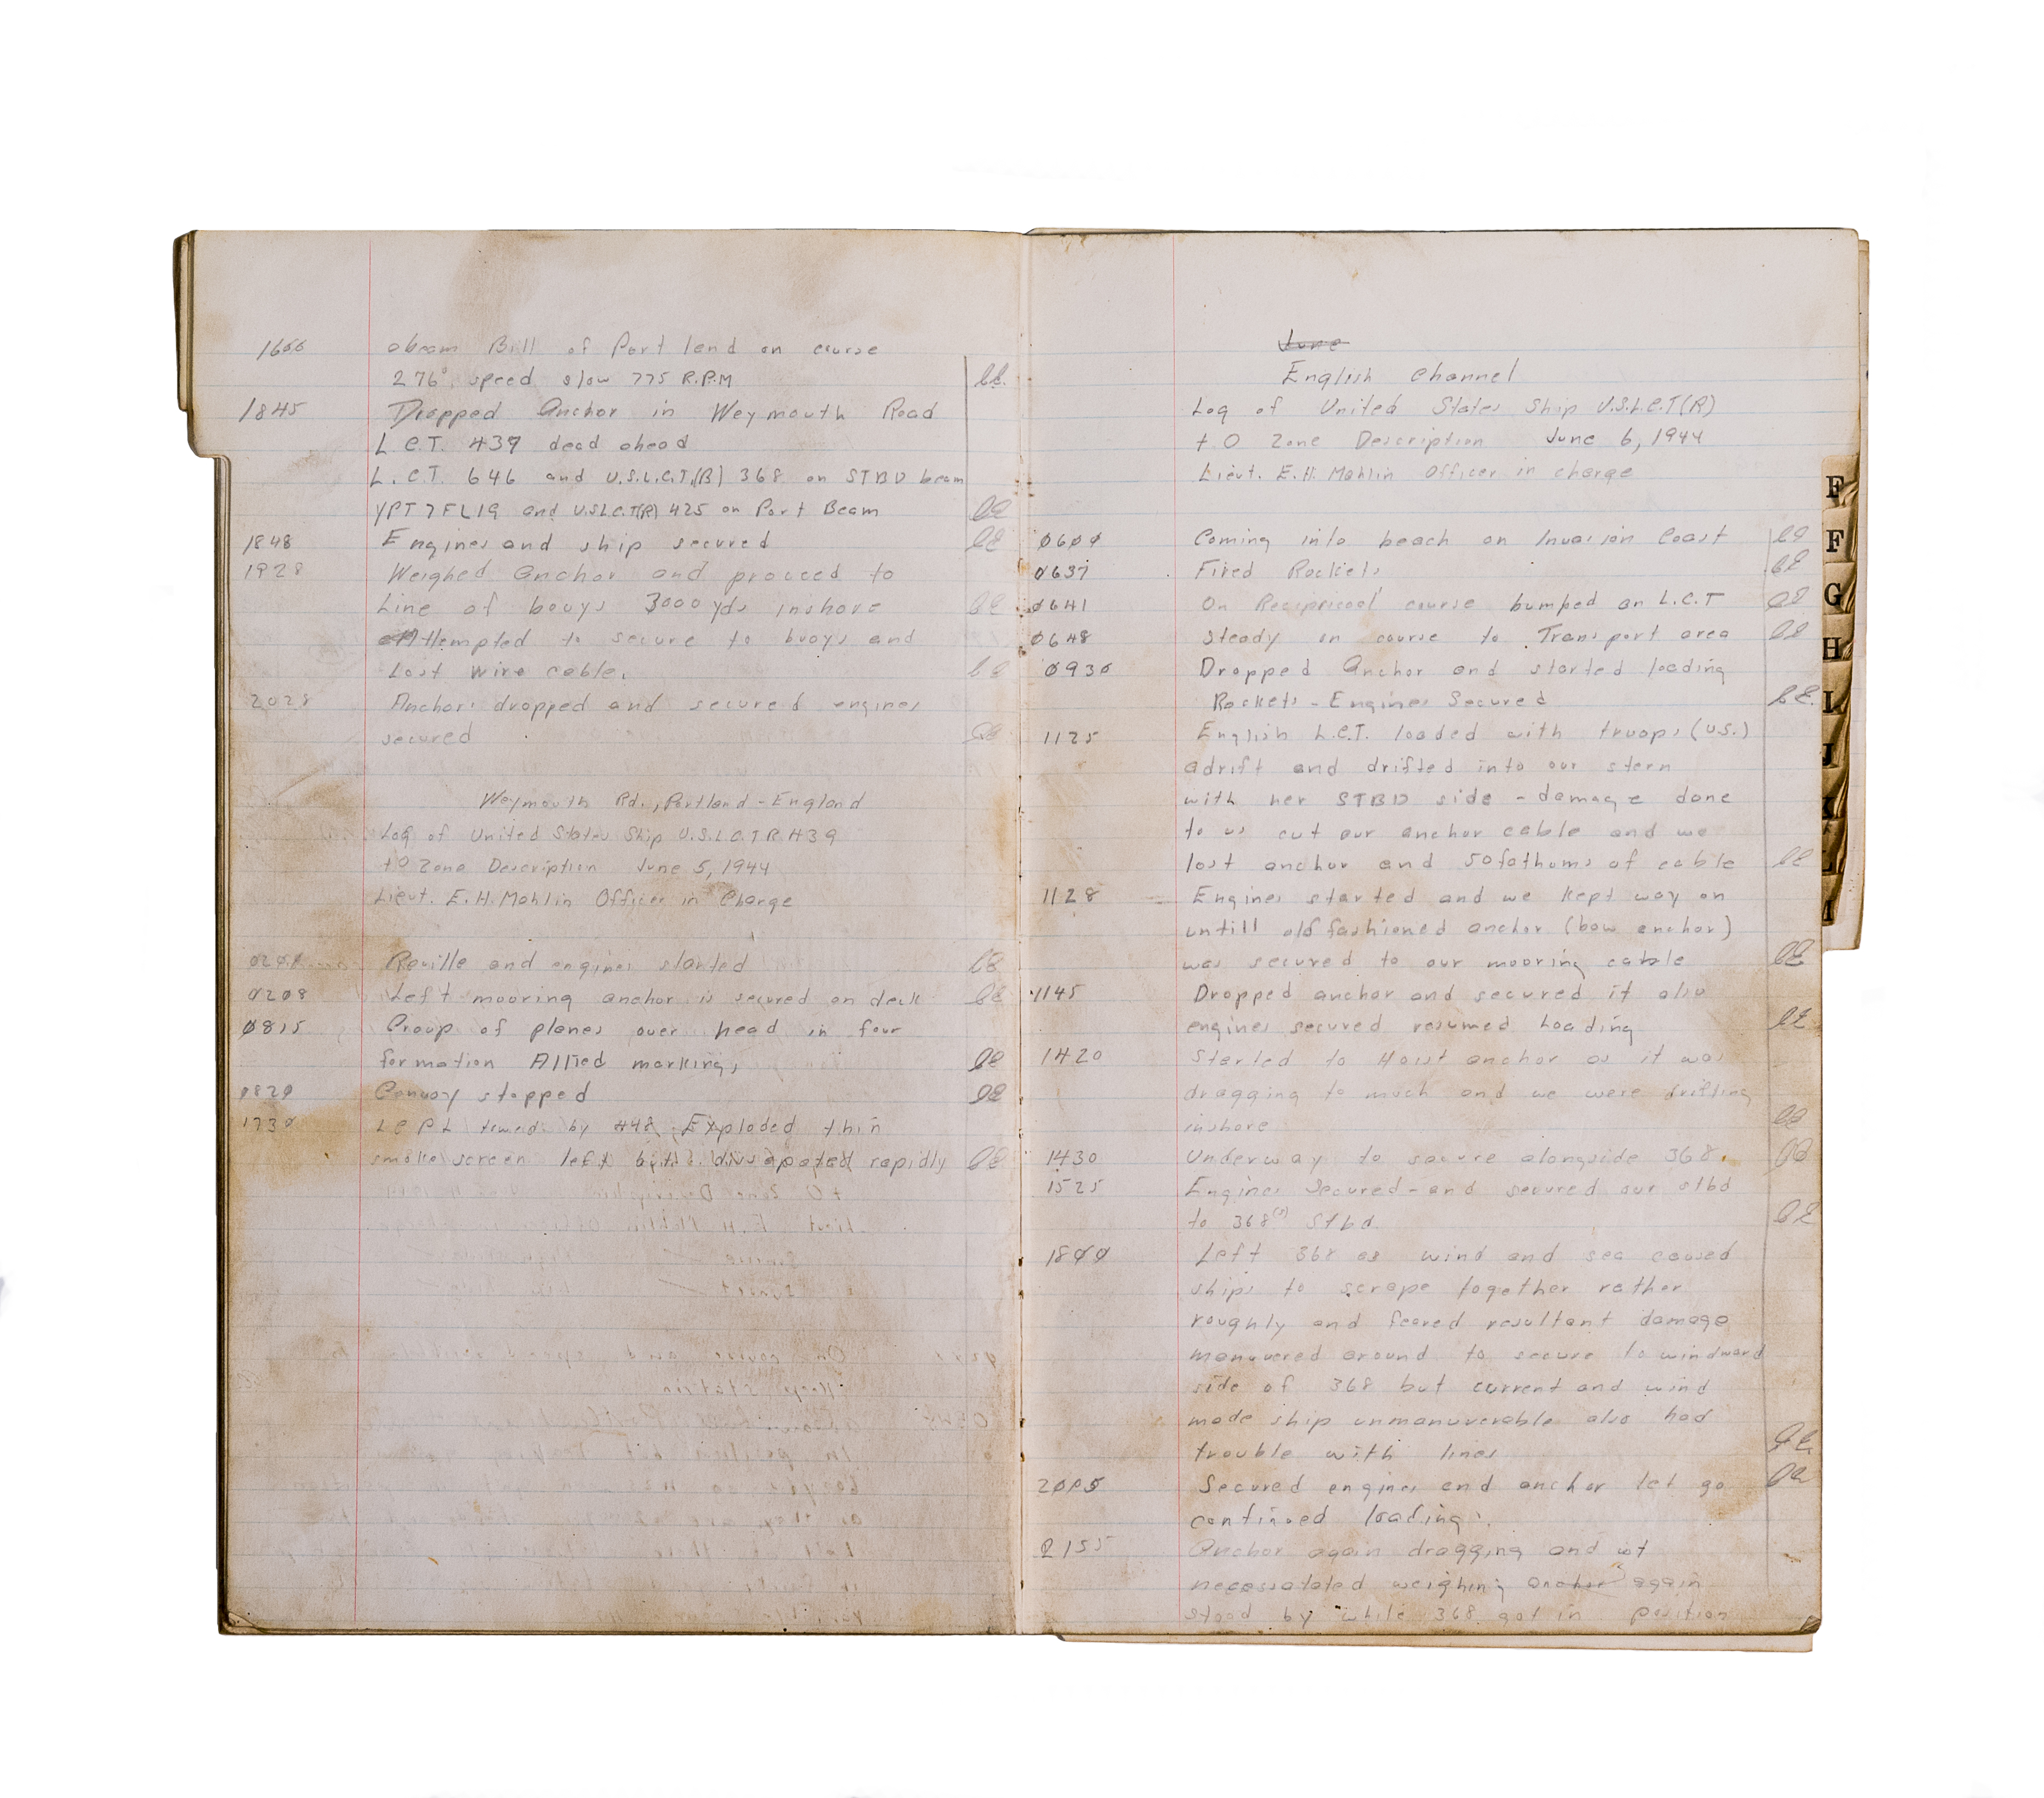 1600 abeam Bill of Portland on course
276° speed slow 775 R.P.M
1845 Dropped Anchor in Weymouth Road
L.C.T. 437 dead ahead
L.C.T. 646 and U.S.L.C.T.(R) 368 on STBD beam
and U.S.L.C.T(R) 425 on Port Beam
1848 Engines and ship secured
1928 Weighed anchor and proceed to
Line of bouys 3000 yds inshore
Attempted to secure to buoys and
Lost wire cable.
2028 Anchor dropped and secured engines
secured
Weymouth Rd., Portland - England
Log of United States Ship U.S.L.C.T.R 439
+0 Zone Description June 5, 1944
Lieut. E.H. Mahlin Officer in Charge
Reville and engines started
0208 Left mooring anchor is secured on deck
0815 Group of planes over head in four
formation Allied markings
0820 Convoy stopped
1730 towed by 448 Exploded thin
smoke screen left but rapidly
June
English Channel
Log of United States Ship U.S.L.C.T(R)
+0 Zone Description June 6, 1944
Lieut. E.H. Mahlin Officer in charge
0600 Coming into beach on Invasion Coast
0637 Fired Rockets
0641 On Recipricool course bumped an L.C.T
0648 Steady on course to Transport area
0930 Dropped Anchor and started loading
Rockets - Engines Secured
1125 English L.C.T. loaded with troops (U.S.)
adrift and drifted into our stern
with her STBD side - damage done
to us cut our anchor cable and we
lost anchor and 50 fathoms of cable
1128 Engines started and we kept way on
untill old fashioned anchor (bow anchor)
was secured to our mooring cable
1145 Dropped anchor and secured it also
engines secured resumed Loading
1420 Started to Hoist anchor as it was
dragging to much and we were drifting
inshore
1430 Underway to secure alongside 368.
1525 Engines Secured - and secured our stbd
to 368(s) Stbd.
1800 Left 368 as wind and sea caused
ships to scrape together rather
roughly and feared resultant damage
manuvered around to secure to windward
side of 368 but current and wind
made ship unmanuverable also had
trouble with lines
2005 Secured engines and anchor let go
continued loading.
2155 Anchor again dragging and it
necessatated weighing anchor again
stood by while 368 got in position
F
F
G
H
L
J